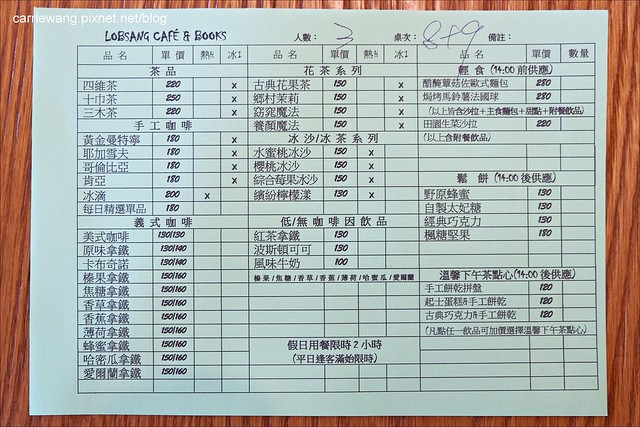 carriewang.pixnet.net/blog
LOBSANG CAFÉ & BOOKS 人數： 3 桌次： 8+9 備註：
品 名 單 價 熱H 冰I 品 名 單價 熱H 冰I 品 名 單價 數量
茶 品 花 茶 系 列 輕 食 (14:00 前供應)
四維茶 220 x 古典花果茶 150 x 醋酸蕈菇佐歐式麵包 280
十巾茶 250 x 鄉村茉莉 150 x 焗烤馬鈴薯法國球 280
三木茶 220 x 窈窕魔法 150 x (以上皆含沙拉＋主食麵包＋甜點＋附餐飲品)
手 工 咖 啡 養顏魔法 150 x 田園生菜沙拉 220
黃金曼特寧 180 x 冰 沙/冰 茶 系 列 (以上含附餐飲品)
耶加雪夫 180 x 水蜜桃冰沙 150 x
哥倫比亞 180 x 櫻桃冰沙 150 x
肯亞 180 x 綜合莓果冰沙 150 x 鬆 餅 (14:00 後供應)
冰滴 200 x 繽紛檸檬漾 130 x 野原蜂蜜 130
每日精選單品 180 自製太妃糖 130
義 式 咖 啡 低/無 咖 啡 因 飲 品 經典巧克力 130
美式咖啡 130/130 紅茶拿鐵 130 楓糖堅果 180
原味拿鐵 130/140 波斯頓可可 130
卡布奇諾 130/140 風味牛奶 100
榛果拿鐵 150/160 榛果/焦糖/香草/香蕉/薄荷/哈蜜瓜/愛爾蘭 溫馨下午茶點心(14:00 後供應)
焦糖拿鐵 150/160 手工餅乾拼盤 120
香草拿鐵 150/160 起士蛋糕&手工餅乾 120
香蕉拿鐵 150/160 古典巧克力&手工餅乾 120
薄荷拿鐵 150/160 (凡點任一飲品可加價選擇溫馨下午茶點心)
蜂蜜拿鐵 150/160 假日用餐限時 2 小時
哈密瓜拿鐵 150/160 (平日逢客滿始限時)
愛爾蘭拿鐵 150/160